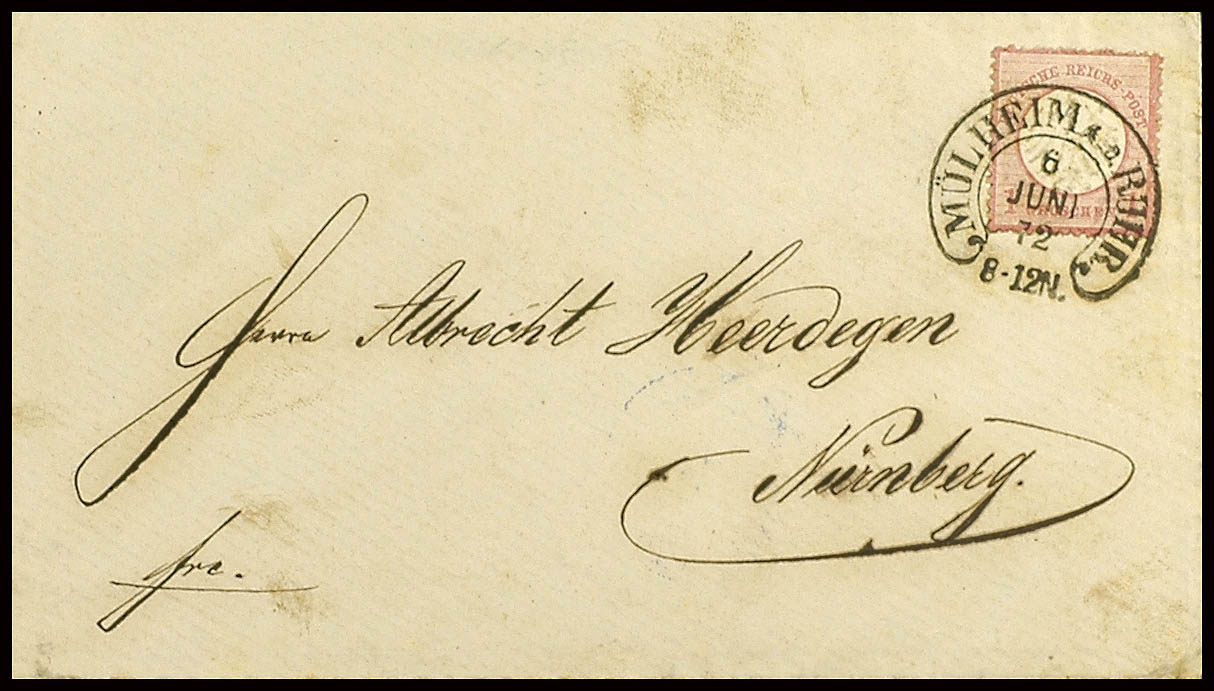 REICHS-POST
MÜLHEIM A.D. RUHR.
6
JUNI
72
8-12N.
Herrn Albrecht Heerdegen
Nürnberg.
frc.